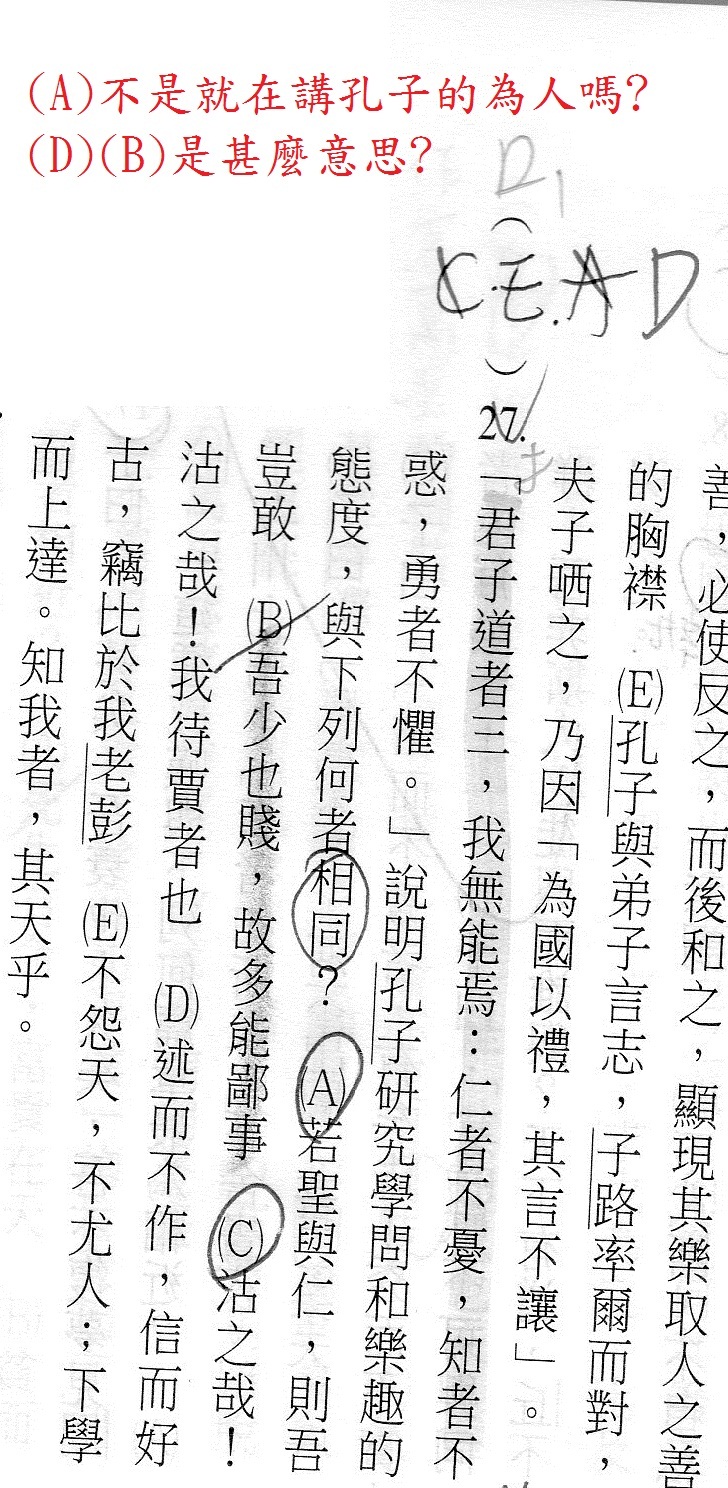 (A)不是就在講孔子的為人嗎?
(D)(B)是甚麼意思?
善，必使反之，而後和之，顯現其樂取人之善
的胸襟　(E)孔子與弟子言志，子路率爾而對，
夫子哂之，乃因「為國以禮，其言不讓」。
D
( CE.AD )27.「君子道者三，我無能焉：仁者不憂，知者不
惑，勇者不懼。」說明孔子研究學問和樂趣的
態度，與下列何者相同？　(A)若聖與仁，則吾
豈敢　(B)吾少也賤，故多能鄙事　(C)沽之哉！
沽之哉！我待賈者也　(D)述而不作，信而好
古，竊比於我老彭　(E)不怨天，不尤人；下學
而上達。知我者，其天乎。